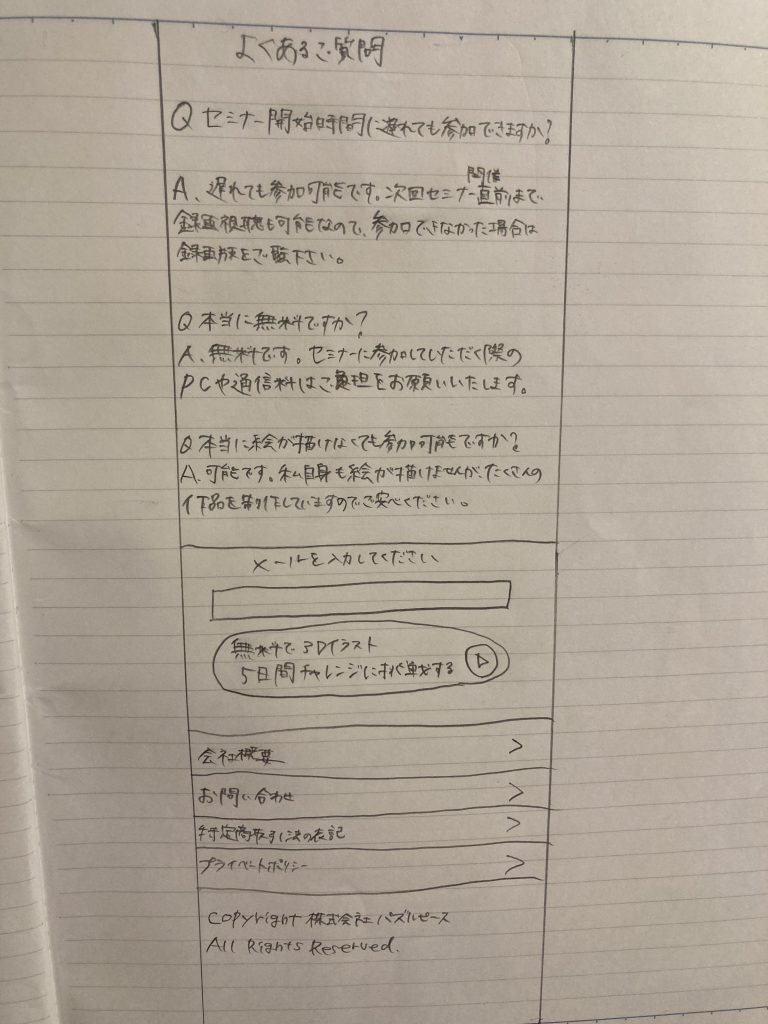 よくあるご質問
Q セミナー開始時間に遅れても参加できますか?
A、遅れても参加可能です。次回セミナー開催直前まで
録画視聴も可能なので、参加できなかった場合は
録画版をご覧下さい。
Q 本当に無料ですか?
A、無料です。セミナーに参加していただく際の
PCや通信料はご負担をお願いいたします。
Q 本当に絵が描けなくても参加可能ですか?
A、可能です。私自身も絵が描けませんが、たくさんの
作品を制作していますのでご安心ください。
メールを入力してください
無料で3Dイラスト
5日間チャレンジに挑戦する
会社概要 >
お問い合わせ >
特定商取引法の表記 >
プライベートポリシー >
Copyright 株式会社パズルピース
All Rights Reserved.